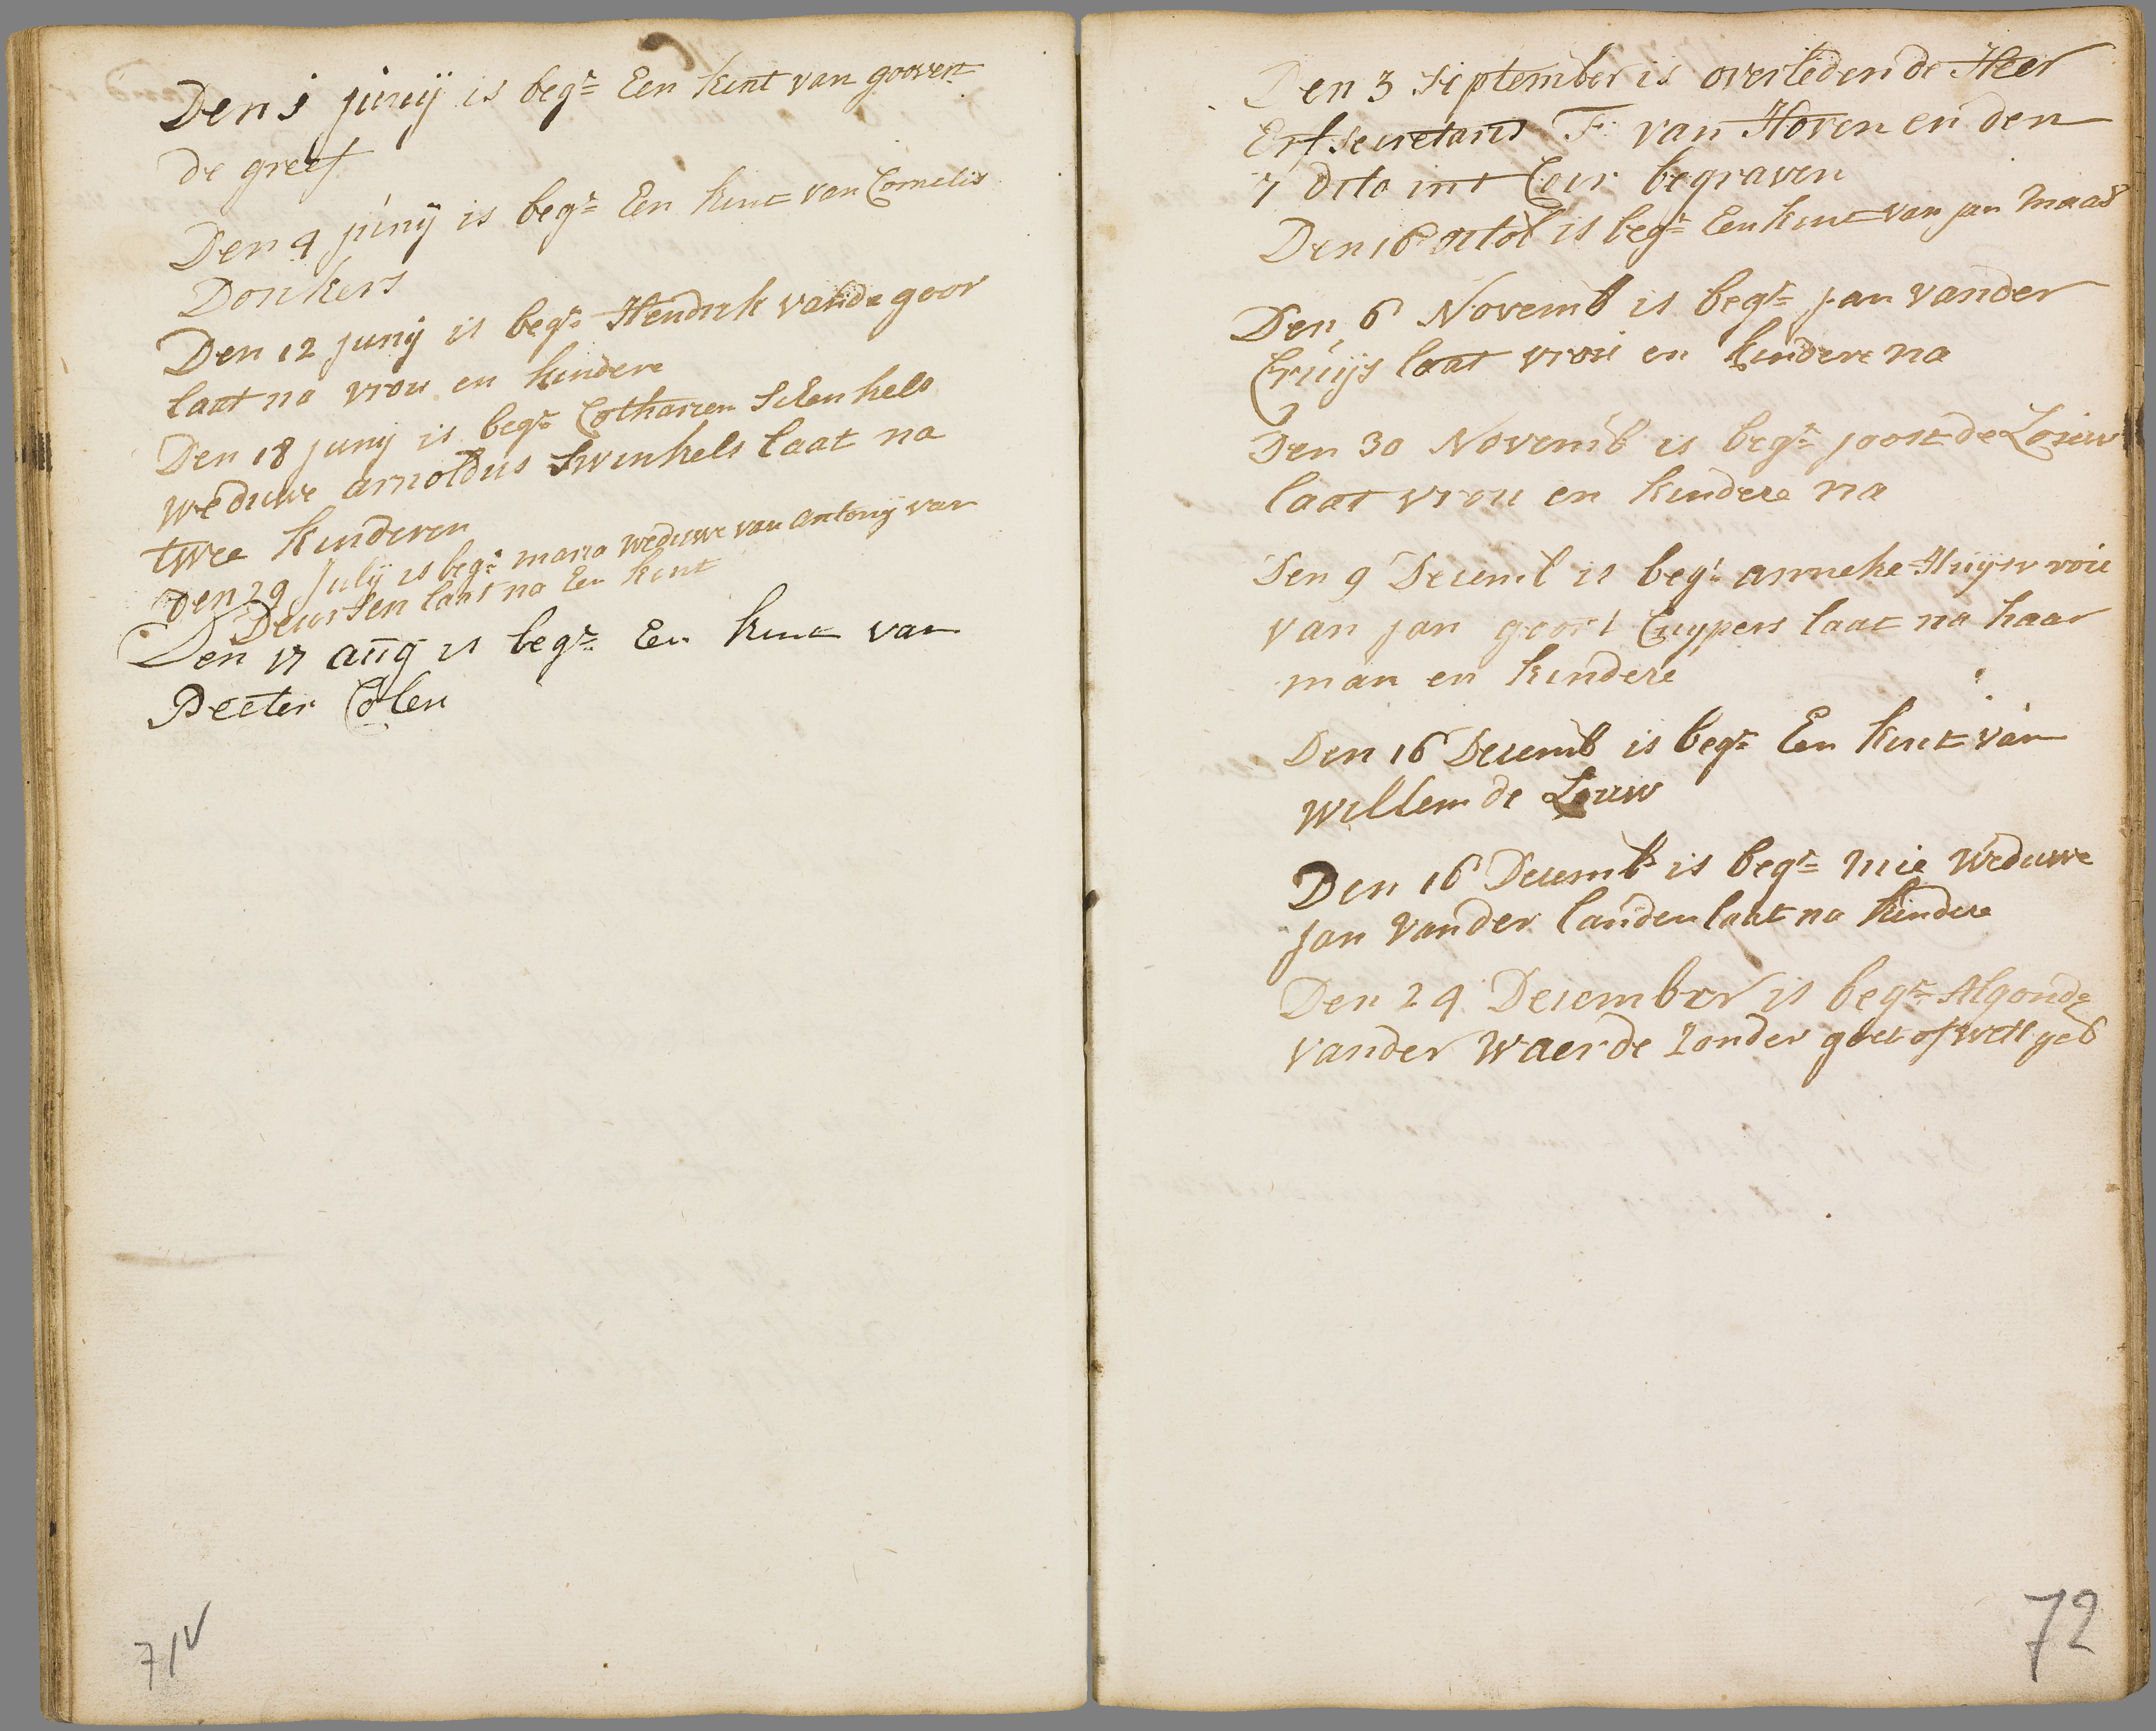 Den 1 junij is begr= Een kint van gooven
de greef
Den 4 junij is begr= Een kint van Cornelis
Donkers
Den 12 junij is begr= Hendrik vande goor
laat na vrou en kindere
Den 18 junij is begr= Catharien
weduwe arnoldus Swinkels laat na
twee kinderen
Den 29 julij is begr= maria weduwe van antonij van
Deursen laat na Een kint
Den 17 aug is begr= Een kint van
Peeter Colen
71V
Den 3 September is overleden de Heer
Erf Secretaris F: van Hoven en den
7 dito int Coor begraven
Den 16 octob is begr= Een kint van jan maas
Den 6 Novemb is begr= jan vander
Cruijs laat vrou en kindere na
Den 30 Novemb is begr= joost de Louw
laat vrou en kindere na
Den 9 Decemb is begr= anneke Huijsvrou
van jan goort Cuypers laat na haar
man en kindere
Den 16 Decemb is begr= Een kint van
Willem de Louw
Den 16 Decemb is begr= mie weduwe
jan vander landen laat na kindere
Den 24 December is begr= Algonde
vander Waerde zonder goet of wett geb
72